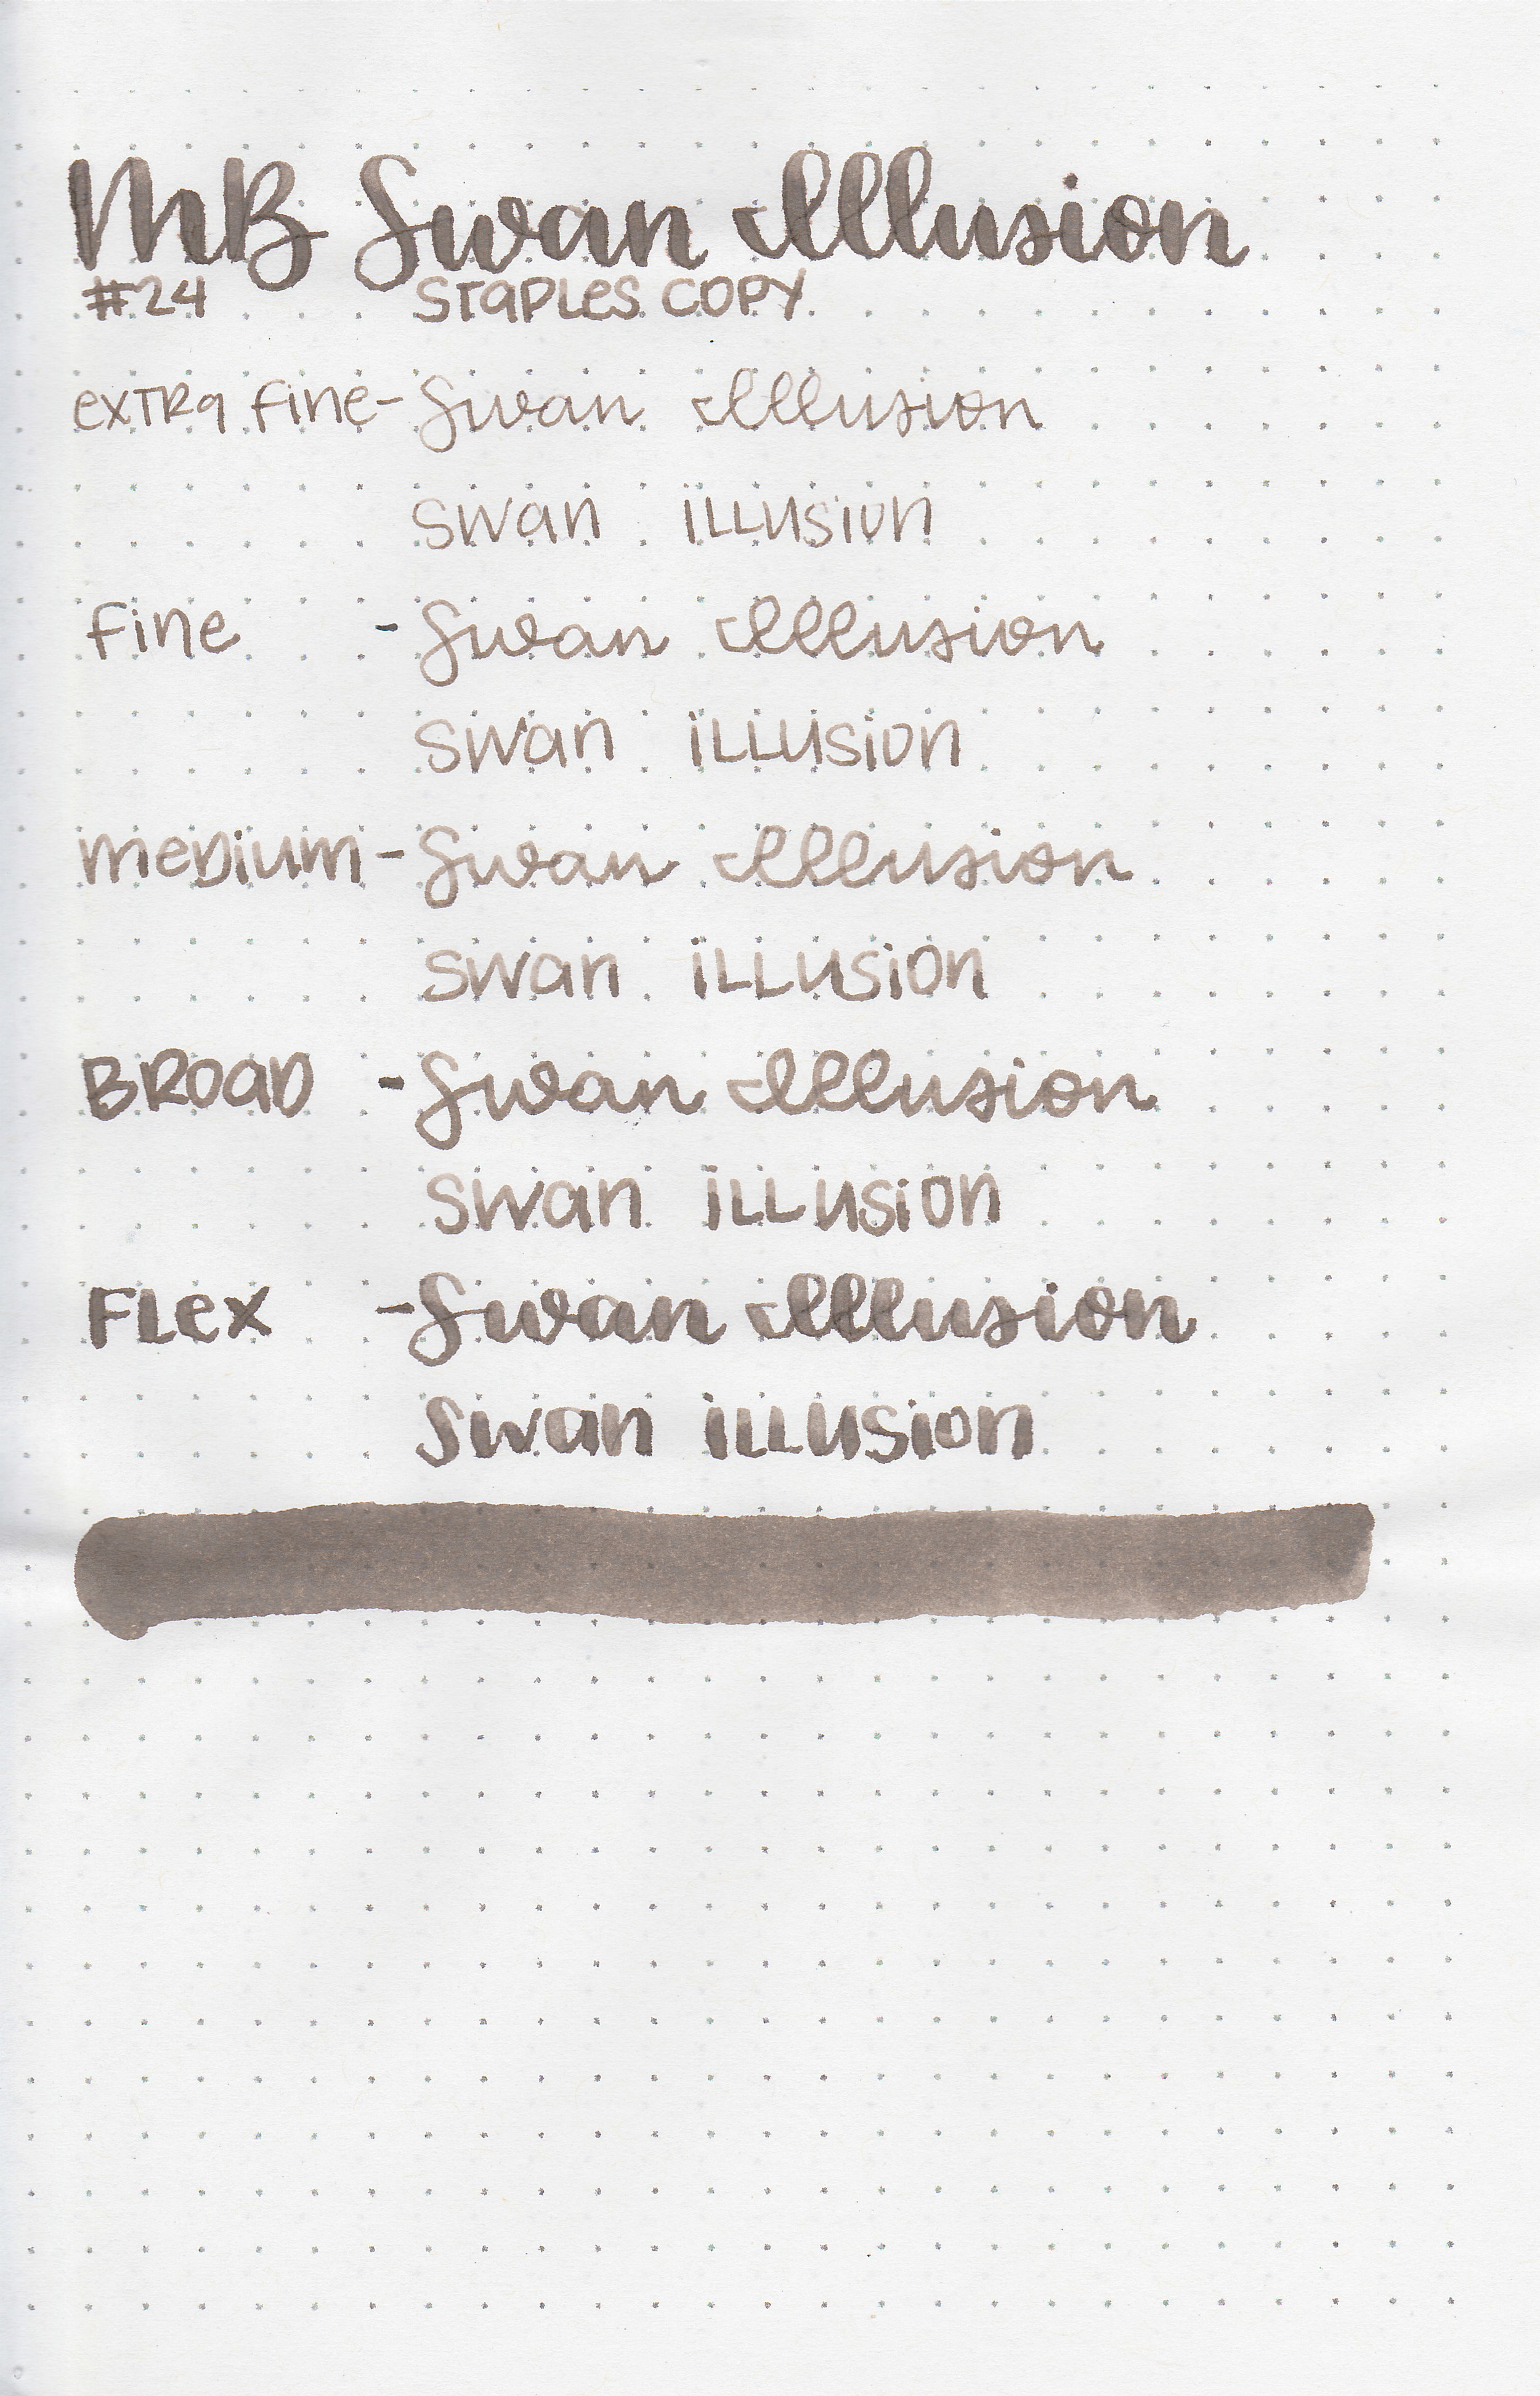 MB Swan Illusion
#24 STAPLES COPY
extra fine - Swan Illusion
swan illusion
fine - Swan Illusion
swan illusion
medium - Swan Illusion
swan illusion
BROAD - Swan Illusion
swan illusion
FLex - Swan Illusion
Swan illusion